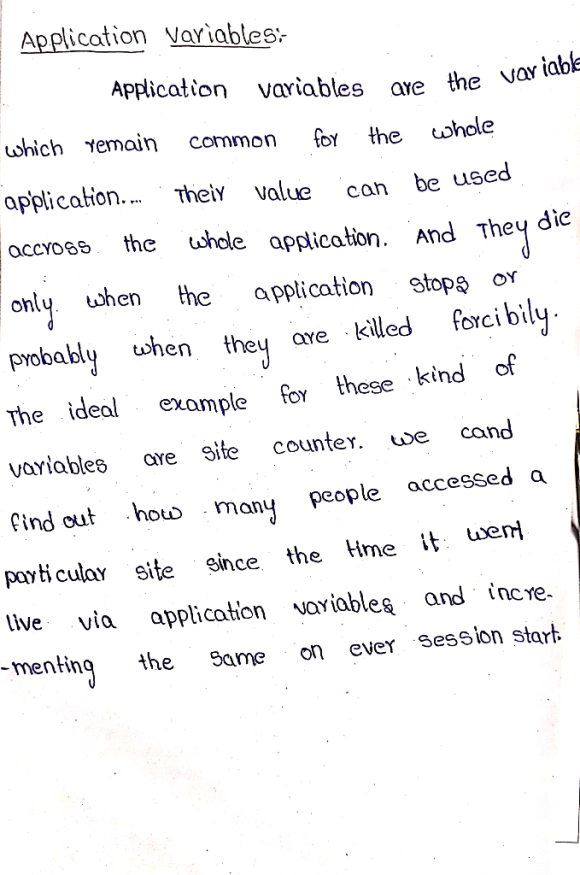 Application Variables:-
Application variables are the variable
which remain common for the whole
application.... Their value can be used
accross the whole application. And They die
only when the application stops or
probably when they are killed forcibily.
The ideal example for these kind of
variables are site counter. we cand
find out how many people accessed a
particular site since the time it went
live via application variables and incre-
-menting the same on ever session start.